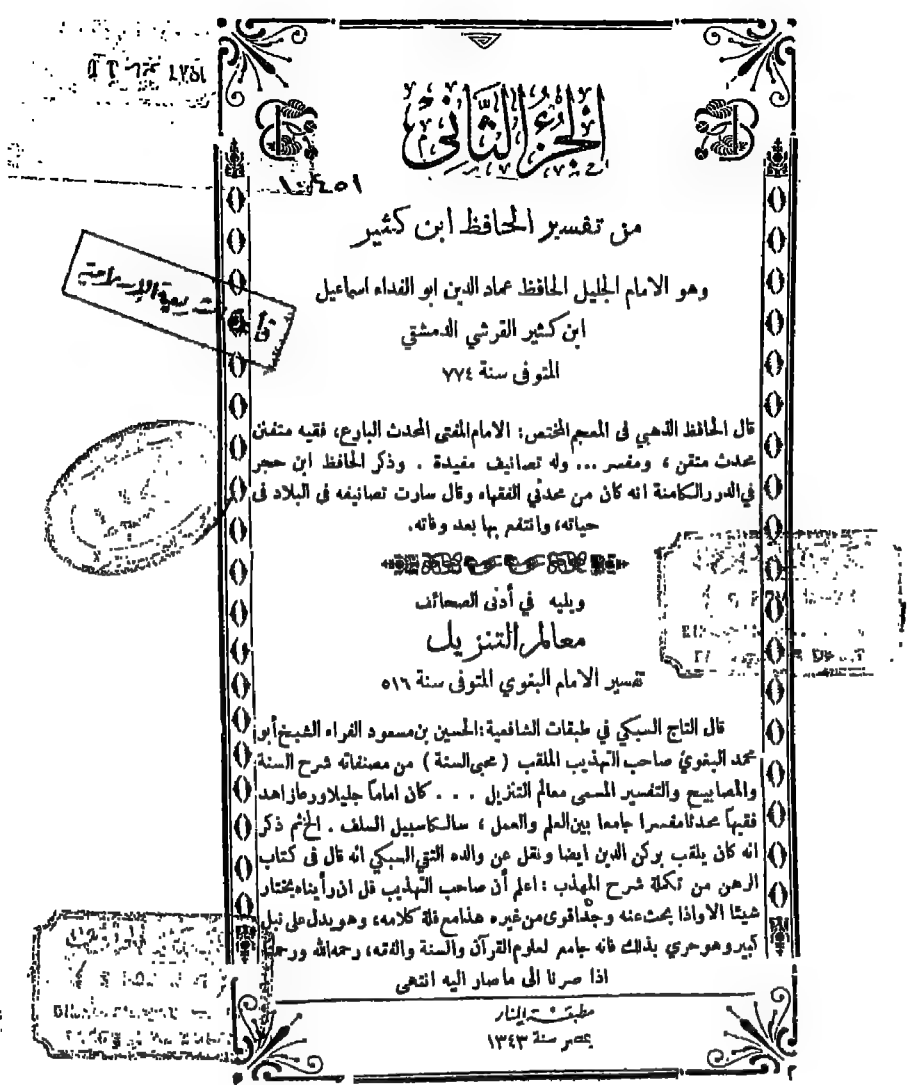 الجزء الثاني
١٠٤٥١
من تفسير الحافظ ابن كثير
وهو الامام الجليل الحافظ عماد الدين ابو الفداء اسماعيل
ابن كثير القرشي الدمشقي
المتوفى سنة ٧٧٤
قال الحافظ الذهبي فى المعجم المختص: الامام المفتى المحدث البارع، فقيه متفنن
محدث متقن ، ومفسر ... وله تصانيف مفيدة . وذكر الحافظ ابن حجر
في الدرر الكامنة انه كان من محدثي الفقهاء وقال سارت تصانيفه فى البلاد فى
حياته، وانتفع بها بعد وفاته.
ويليه في أدنى الصحائف
معالم التنزيل
تفسير الامام البغوي المتوفى سنة ٥١٦
قال التاج السبكي في طبقات الشافعية: الحسين بن مسعود الفراء الشيخ أبو
محمد البغوي صاحب التهذيب الملقب ( محيى السنة ) من مصنفاته شرح السنة
والمصابيح والتفسير المسمى معالم التنزيل . . . كان اماماً جليلا ورعا زاهد
فقيهاً محدثا مفسرا جامعا بين العلم والعمل ، سالكا سبيل السلف . الخ ثم ذكر
انه كان يلقب بركن الدين ايضا ونقل عن والده التقي السبكي انه قال فى كتاب
الرهن من تكملة شرح المهذب : اعلم أن صاحب التهذيب قل ان رأيناه يختار
شيئا الا واذا بحث عنه وجد أقوى من غيره هذا مع قلة كلامه، وهو يدل على نبل
كبير وهو حري بذلك فانه جامع لعلوم القرآن والسنة والفقه، رحمه الله ورحمنا
اذا صرنا الى ما صار اليه انتهى
مطبعة المنار
بمصر سنة ١٣٤٣